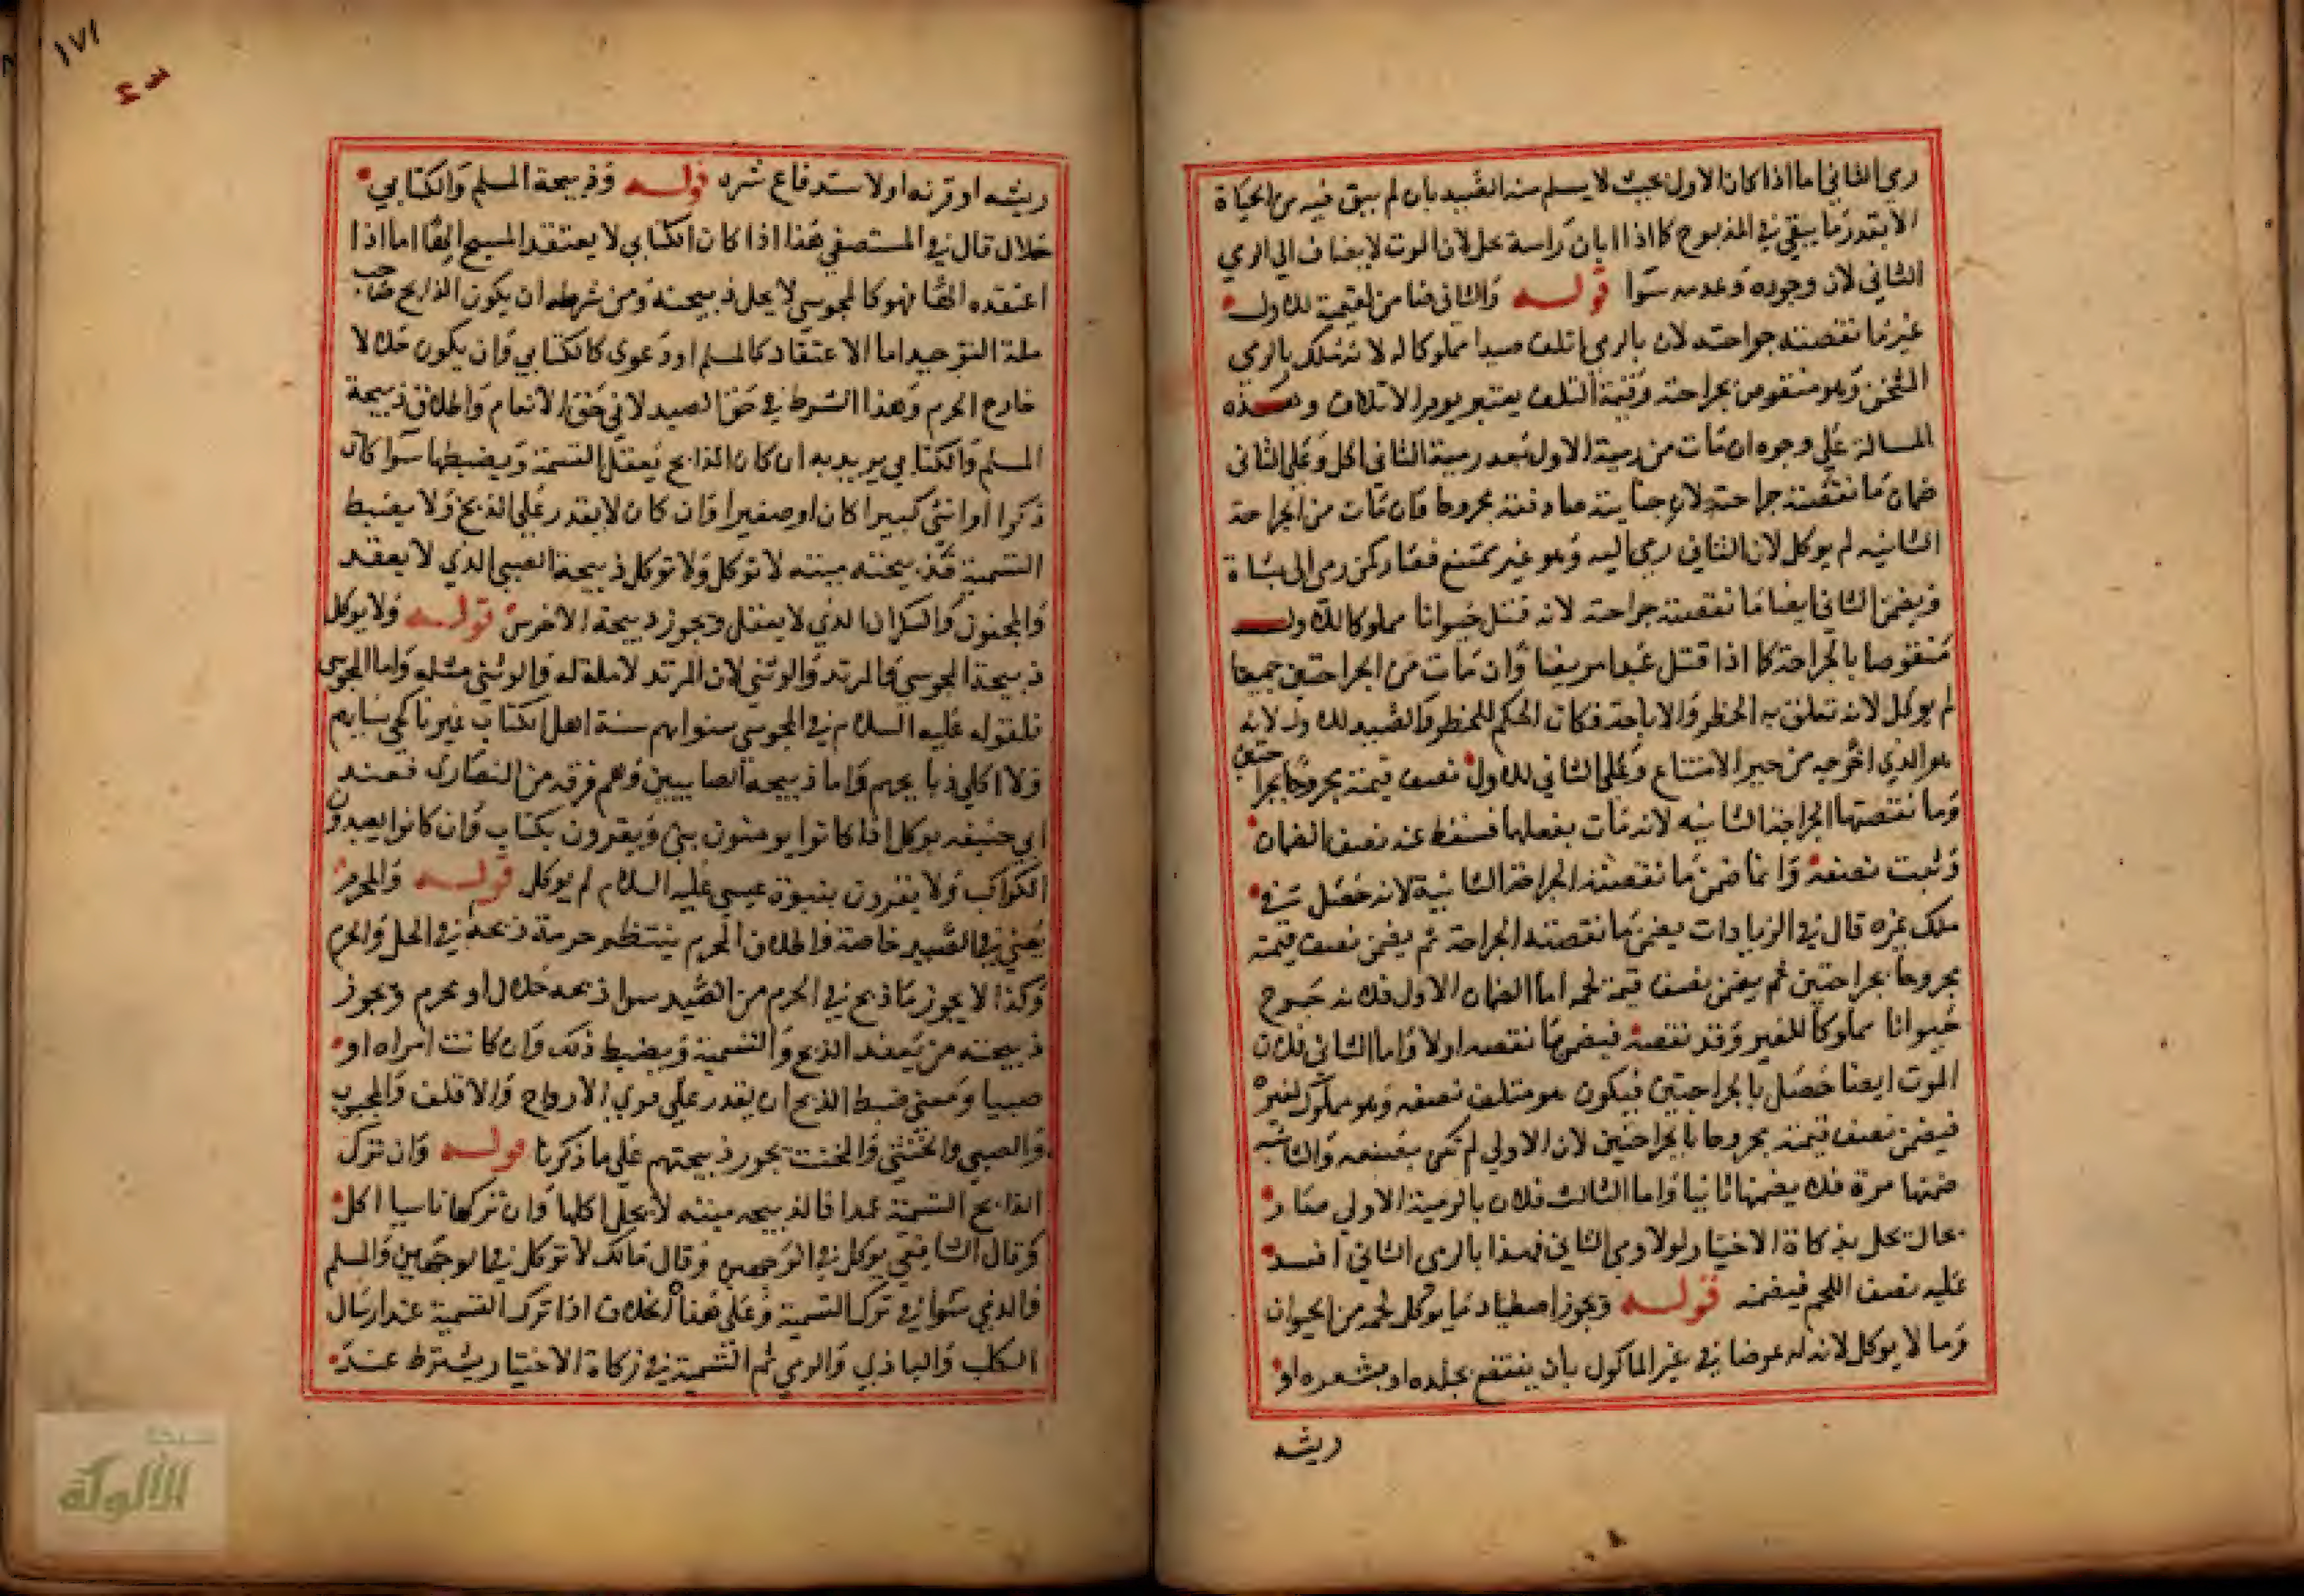 رمي الثاني اما اذا كان الاول بحيث لا يسلم منه الصيد بان لم يبق فيه من الحياة
الا بقدر ما يبقي في المذبوح كما اذا ابان راسه حل لان الموت لا يضاف الي الرمي
الثاني لان وجوده وعدمه سوا قوله والثاني ضامن لقيمته للاول
غير ما نقصته جراحته لان بالرمي اتلف صيدا مملوكا له لانه تملك بالرمي
المثخن وهو منقوص بجراحته وقيمة التلف يعتبر يوم الاتلاف وهذه
المسالة علي وجوه ان مات من رمية الاول بعد رمية الثاني اكل وعلي الثاني
ضمان ما نقصته جراحته لان جنايته صادفته مجروحا فان مات من الجراحة
الثانيه لم يوكل لان الثاني رمي اليه وهو غير ممتنع فصار كمن رمي الي شاة
ويضمن الثاني ايضا ما نقصته جراحته لانه قتل حيوانا مملوكا للاول
منقوصا بالجراحة كما اذا قتل عبدا مريضا وان مات من الجراحتين جميعا
لم يوكل لانه تعلق به الحظر والاباحة فكان الحكم للحظر والصيد للاول لانه
هو الذي اخرجه من حيز الامتناع وعلي الثاني للاول نصف قيمته مجروحا بجراحتين
وما نقصتها الجراحة الثانيه لانه مات بفعلها فسقط عنه نصف الضمان
وثبت نصفه وانما ضمن ما نقصته الجراحة الثانية لانه حصل في
ملك غيره قال في الزيادات يضمن ما نقصته الجراحة ثم يضمن نصف قيمته
مجروحا بجراحتين ثم يضمن نصف قيمة لحمه اما الضمان الاول فلانه جرح
حيوانا مملوكا للغير وقد نقصه فيضمن ما نقصه اولا واما الثاني فلان
الموت ايضا حصل بالجراحتين فيكون هو متلف نصفه وهو مملوك لغيره
فيضمن نصف قيمته مجروحا بالجراحتين لان الاولي لم تكن بصنعه والثانيه
ضمنها مرة فلا يضمنها ثانيا واما الثالث فلان بالرمية الاولي صار
بحالة يحل بذكاة الاختيار لولا رمي الثاني فهذا بالرمي الثاني افسد
عليه نصف اللحم فيضمنه قوله ويجوز اصطياد ما يوكل لحمه من الحيوان
وما لا يوكل لانه له عوضا في غير الماكول بان ينتفع بجلده او بشعره او
ريشه
١٧١
ريشه او قرنه او لاستدفاع شره قوله وذبيحة المسلم والكتابي
حلال قال في المستصفي هذا اذا كان الكتابي لا يعتقد المسيح الها اما اذا
اعتقده الها فهو كالمجوسي لا يحل ذبيحته ومن شرطه ان يكون الذابح صاحب
ملة التوحيد اما الاعتقاد كالمسلم او دعوي كالكتابي وان يكون حلالا
خارج الحرم وهذا الشرط في حق الصيد لا في حق الانعام واطلاق ذبيحة
المسلم والكتابي يريد به ان كان الذابح يعقل التسمية ويضبطها سوا كان
ذكرا او انثي كبيرا كان او صغيرا وان كان لا يقدر علي الذبح ولا يضبط
التسمية فذبيحته ميتته لا توكل ولا توكل ذبيحة الصبي الذي لا يعقد
والمجنون والسكران الذي لا يعقل ويجوز ذبيحة الاخرس قوله ولا يوكل
ذبيحة المجوسي والمرتد والوثني لان المرتد لا ملة له والوثني مثله واما المجوسي
فلقوله عليه السلام في المجوسي سنوا بهم سنة اهل الكتاب غير ناكحي نسايهم
ولا اكلي ذبايحهم واما ذبيحة الصابيين وهم فرقه من النصاري فعند
ابي حنيفه يوكل اذا كانوا يومنون بنبي ويقرون بكتاب وان كانوا يعبدون
الكواكب ولا يقرون بنبوة عيسي عليه السلام لم يوكل قوله والمحرم
يعني في الصيد خاصة فاطلاق المحرم ينتظم حرمة ذبحه في الحل والحرم
وكذا لا يجوز ما ذبح في الحرم من الصيد سوا ذبحه حلال او محرم ويجوز
ذبيحته من يعقد الذبح والتسمية ويضبط ذلك وان كانت امراه او
صبيا ومعني ضبط الذبح ان يقدر علي فري الاوداج والاقلف والمجبوب
والصبي والخنثي والمخنث يجوز ذبيحتهم علي ما ذكرنا قوله وان ترك
الذابح التسمية عمدا فالذبيحه ميتته لا يحل اكلها وان تركها ناسيا اكل
وقال الشافعي يوكل في الوجهين وقال مالك لا توكل في الوجهين والمسلم
والذمي سوا في ترك التسمية وعلي هذا الخلاف اذا ترك التسمية عند ارسال
الكلب والبازي والرمي ثم التسمية في زكاة الاختيار يشترط عند
الألوكة